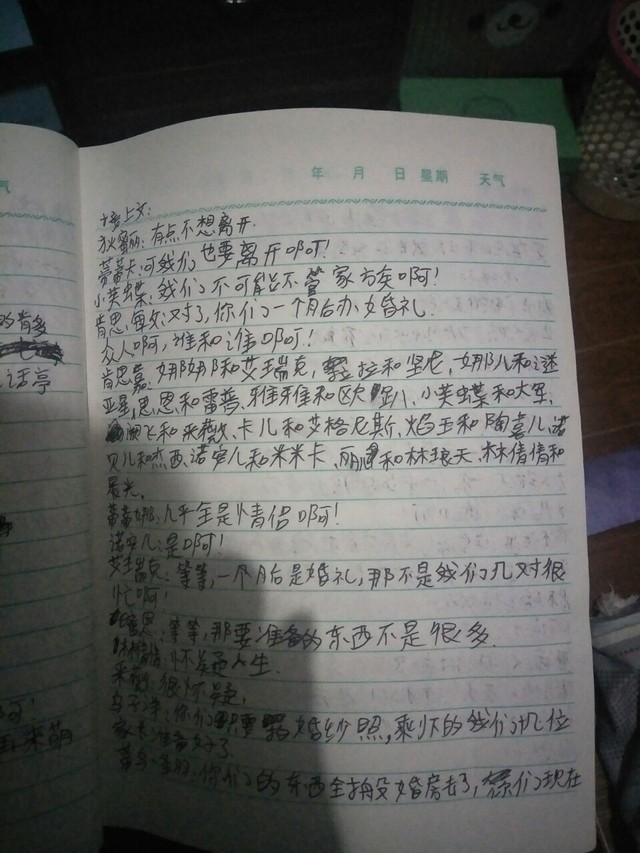 气
年 月 日 星期 天气
接上文:
狄蜜丽:有点不想离开.
蒂蒂卡:可我们也要离开啊!
小芙蝶:我们不可能不管家族啊!
肯思 对了,你们一个月后办婚礼.
众人啊,谁和谁啊!
的肯多
肯思嘉:娜娜和艾瑞克, 拉和坚尼,娜儿和谜
亚星,思恩和雷普,雅雅和欧趴、小芙蝶和大军、
话亭
飞和采薇、卡儿和艾格尼斯、焰王和陶喜儿、诺
贝儿和杰西、诺安儿和米米卡、丽 和林琅天、林倩倩和
晨光.
蒂蒂娜:几乎全是情侣啊!
诺安儿:是啊!
艾瑞克:等等,一个月后是婚礼,那不是我们几对很
忙啊!
思:等等,那要准备的东西不是很多.
林倩倩:怀疑人生.
采薇:很怀疑,
乌子洋:你们只要 婚纱照,剩怀的我们几位
啊!
家长准备好了.
来萌
你们的东西全搬没婚房去了,你们现在